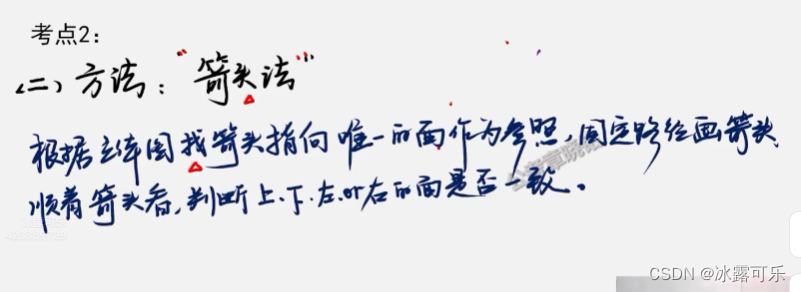 考点2：
(二) 方法："箭头法"
根据立体图找箭头指向唯一的面作为参照,固定路径画箭头
顺着箭头看,判断上.下.左.or右的面是否一致。
CSDN @冰露可乐